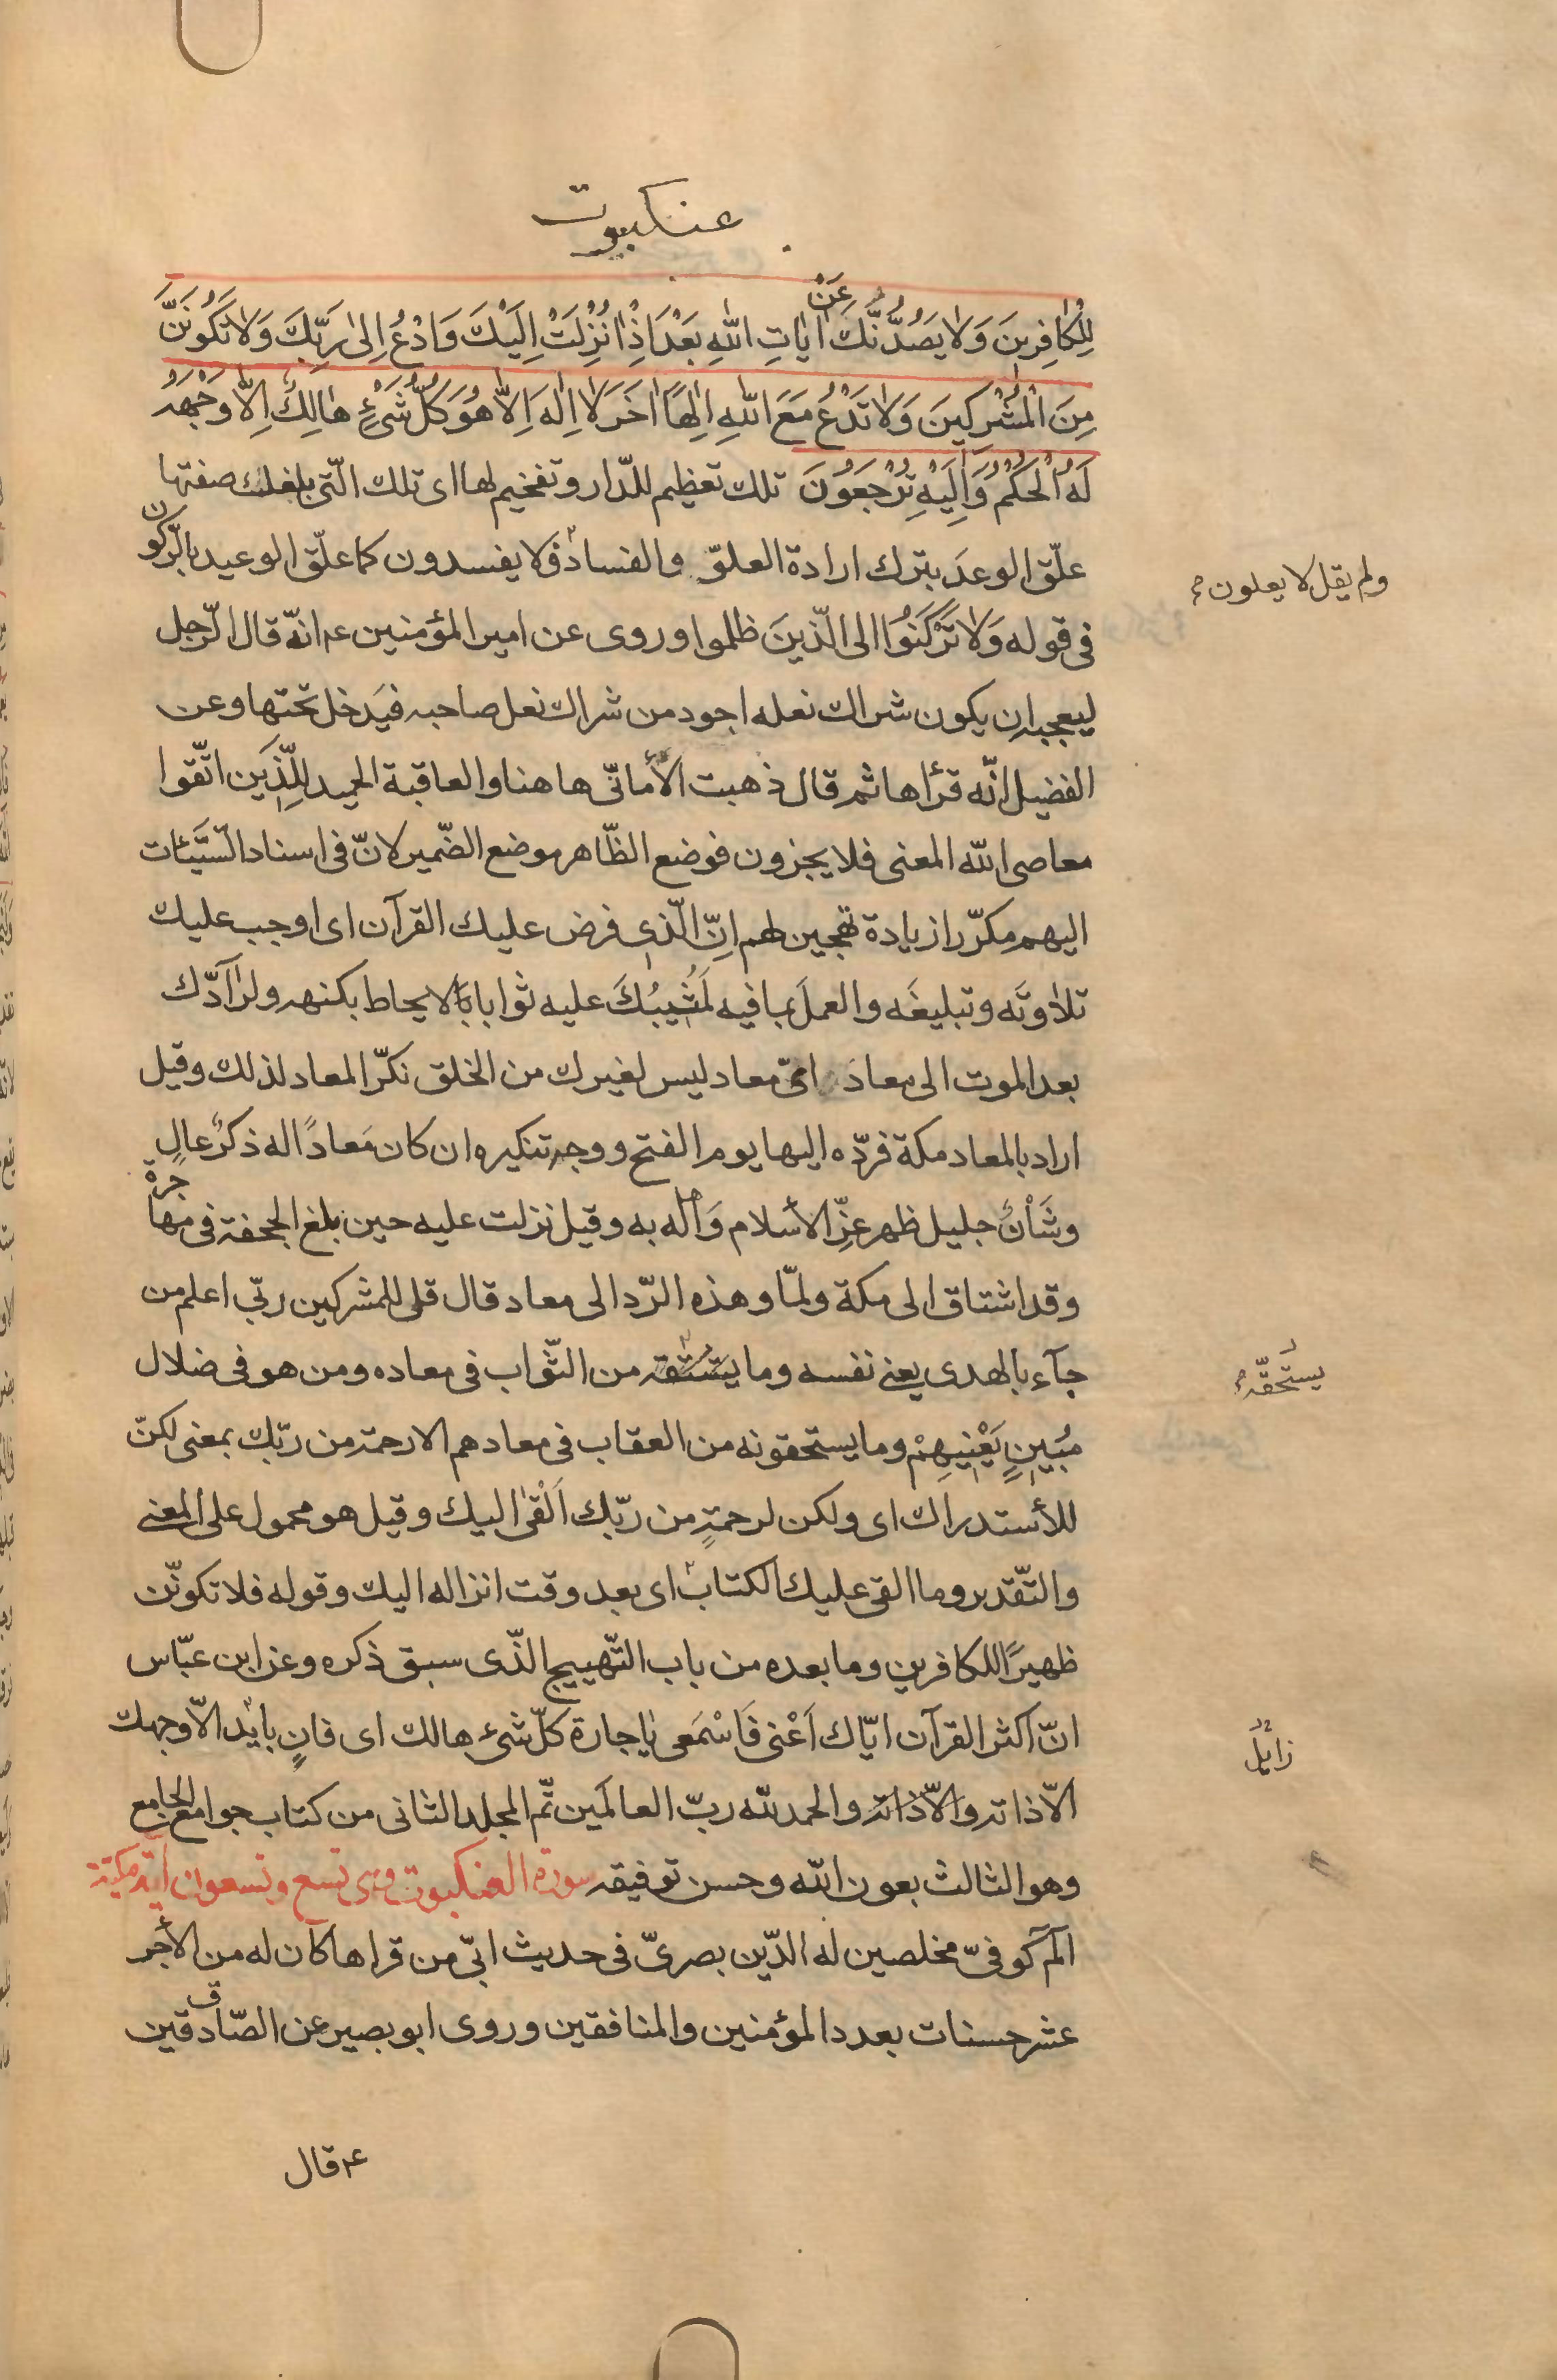 عنكبوت
لِلْكافِرينَ وَلا يَصُدُّنَّكَ عَنْ اياتِ اللهِ بَعْدَ اِذْ اُنْزِلَتْ اِلَيْكَ وَادْعُ اِلى رَبِّكَ وَلا تَكُونَنَّ
مِنَ الْمُشْرِكينَ وَلا تَدْعُ مَعَ اللهِ اِلهًا اخَرَ لا اِلهَ اِلّا هُوَ كُلُّ شَيْءٍ هالِكٌ اِلّا وَجْهَهُ
لَهُ الْحُكْمُ وَاِلَيْهِ تُرْجَعُونَ تلك تعظيم للدّار وتفخيم لها اى تلك الّتى بلغك صفتها
علّق الوعدَ بترك ارادة العلوّ والفساد ولا يفسدون كما علّق الوعيد بالرّكون
ولم يقل لا يعلون
فى قوله وَلا تَرْكَنُوا الى الّذينَ ظلموا وروى عن امير المؤمنين ع انّه قال الرّجل
ليعجبه ان يكون شراك نعله اجود من شراك نعل صاحبه فيَدخل تحتها وعن
الفضيل انّه قرأها ثم قال ذهبت الأمانىّ هاهنا والعاقبة الحميد لِلّذين اتّقوا
معاصى الله المعنى فلا يجزون فوضع الظّاهر موضع الضّمير لانّ فى اسناد السّيّئات
اليهم مكرّرا زيادة تهجين لهم اِنّ الّذى فرض عليك القرآن اى اوجب عليك
تلاوتَه وتبليغَه والعملَ بما فيه لَمُثيبُكَ عليه ثوابا لا يحاط بكنهه ولرآدّك
بعد الموت الى معاد اىّ معاد ليس لغيرك من الخلق نكرّ المعاد لذلك وقيل
اراد بالمعاد مكة فردّه اليها يوم الفتح ووجه تنكيره ان كان مَعادًا له ذكرٌ عالٍ
وشَأنٌ جليل ظهر عزّ الأسلام وَاَهله به وقيل نزلت عليه حين بلغ الجحفة فى مهاجرة
وقد اشتاق الى مكة ولمّا وهذه الرّد الى معاد قال قل للمشركين ربّى اعلم من
جآء بالهدى يعنى نفسه وما يستحقه من الثّواب فى معاده ومن هو فى ضلال
يستحقّه
مُبينٍ يَعْنيهِمْ وما يستحقونه من العقاب فى معادهم الا رحمة من ربّك بمعنى لكنّ
للأستدراك اى ولكن لرحمةٍ من ربّك اَلْقى اليك وقيل هو محمول على المعنى
والتّقدير وما القى عليك الكتاب اى بعد وقت انزاله اليك وقوله فلا تكونّن
ظهيرًا للكافرين وما بعده من باب التّهييج الذّى سبق ذكره وعن ابن عبّاس
انّ اكثر القرآن ايّاك اَعْنى فَاسْمَعى يا جارة كلّ شئ هالك اى فانٍ بايد الّا وجهك
زايل
الّا ذاته والّا ذاته والحمد لله ربّ العالَمين تمّ المجلد الثانى من كتاب جوامع الجامع
وهو الثالث بعون الله وحسن توفيقه سورة العنكبوت وهى تسع وتسعون اية مكيّة
آلم كوفىّ مخلصين له الدّين بصرىّ فى حديث ابىّ من قراها كان له من الأجر
عشر حسنات بعدد المؤمنين والمنافقين وروى ابو بصير عن الصّادقين
ع قال